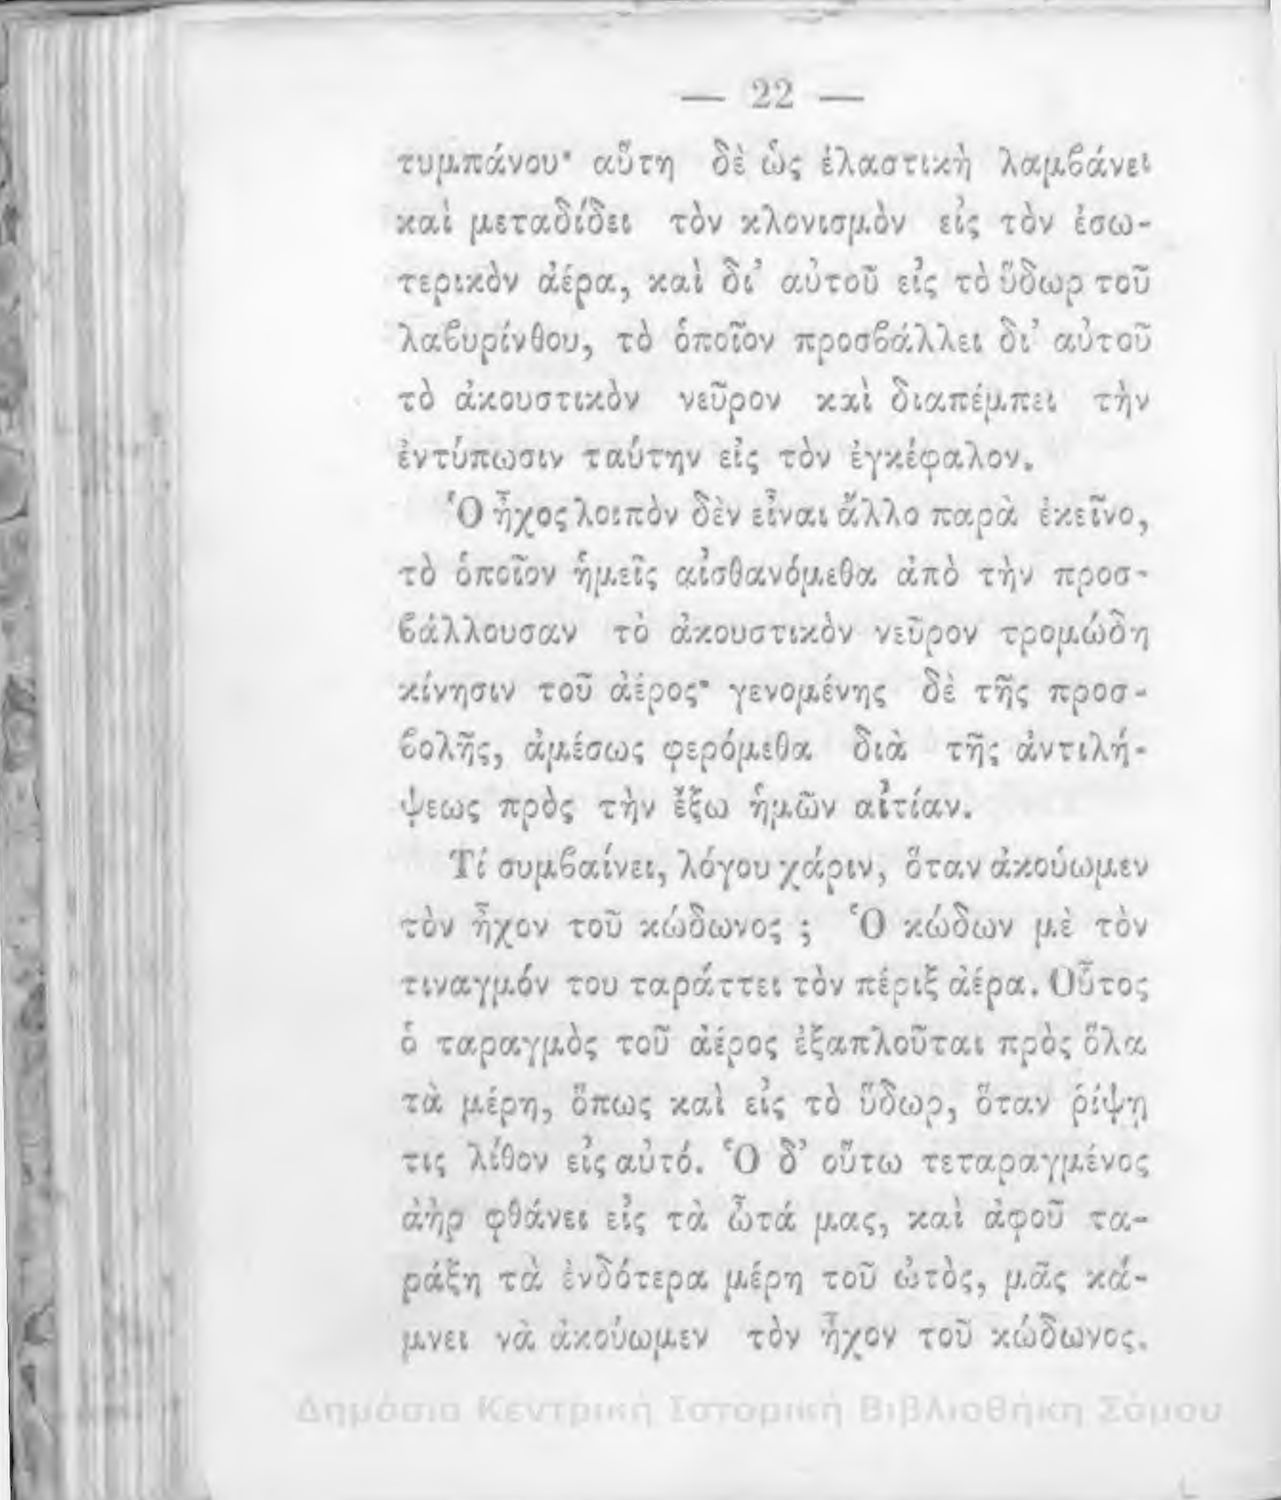 — 22 —
τυμπάνου· αὕτη δὲ ὡς ἐλαστικὴ λαμϐάνει
καὶ μεταδίδει τὸν κλονισμὸν εἰς τὸν ἐσω-
τερικὸν ἀέρα, καὶ δι’ αὐτοῦ εἰς τὸ ὕδωρ τοῦ
λαϐυρίνθου, τὸ ὁποῖον προσϐάλλει δι’ αὐτοῦ
τὸ ἀκουστικὸν νεῦρον καὶ διαπέμπει τὴν
ἐντύπωσιν ταύτην εἰς τὸν ἐγκέφαλον.
Ὁ ἦχος λοιπὸν δὲν εἶναι ἄλλο παρὰ ἐκεῖνο,
τὸ ὁποῖον ἡμεῖς αἰσθανόμεθα ἀπὸ τὴν προσ-
ϐάλλουσαν τὸ ἀκουστικὸν νεῦρον τρομώδη
κίνησιν τοῦ ἀέρος· γενομένης δὲ τῆς προσ-
ϐολῆς, ἀμέσως φερόμεθα διὰ τῆς ἀντιλή-
ψεως πρὸς τὴν ἔξω ἡμῶν αἰτίαν.
Τί συμϐαίνει, λόγου χάριν, ὅταν ἀκούωμεν
τὸν ἦχον τοῦ κώδωνος ; Ὁ κώδων μὲ τὸν
τιναγμόν του ταράττει τὸν πέριξ ἀέρα. Οὗτος
ὁ ταραγμὸς τοῦ ἀέρος ἐξαπλοῦται πρὸς ὅλα
τὰ μέρη, ὅπως καὶ εἰς τὸ ὕδωρ, ὅταν ῥίψῃ
τις λίθον εἰς αὐτό. Ὁ δ’ οὕτω τεταραγμένος
ἀὴρ φθάνει εἰς τὰ ὦτά μας, καὶ ἀφοῦ τα-
ράξη τὰ ἐνδότερα μέρη τοῦ ὠτὸς, μᾶς κά-
μνει νὰ ἀκούωμεν τὸν ἦχον τοῦ κώδωνος.
Δημόσια Κεντρική Ιστορική Βιβλιοθήκη Σάμου